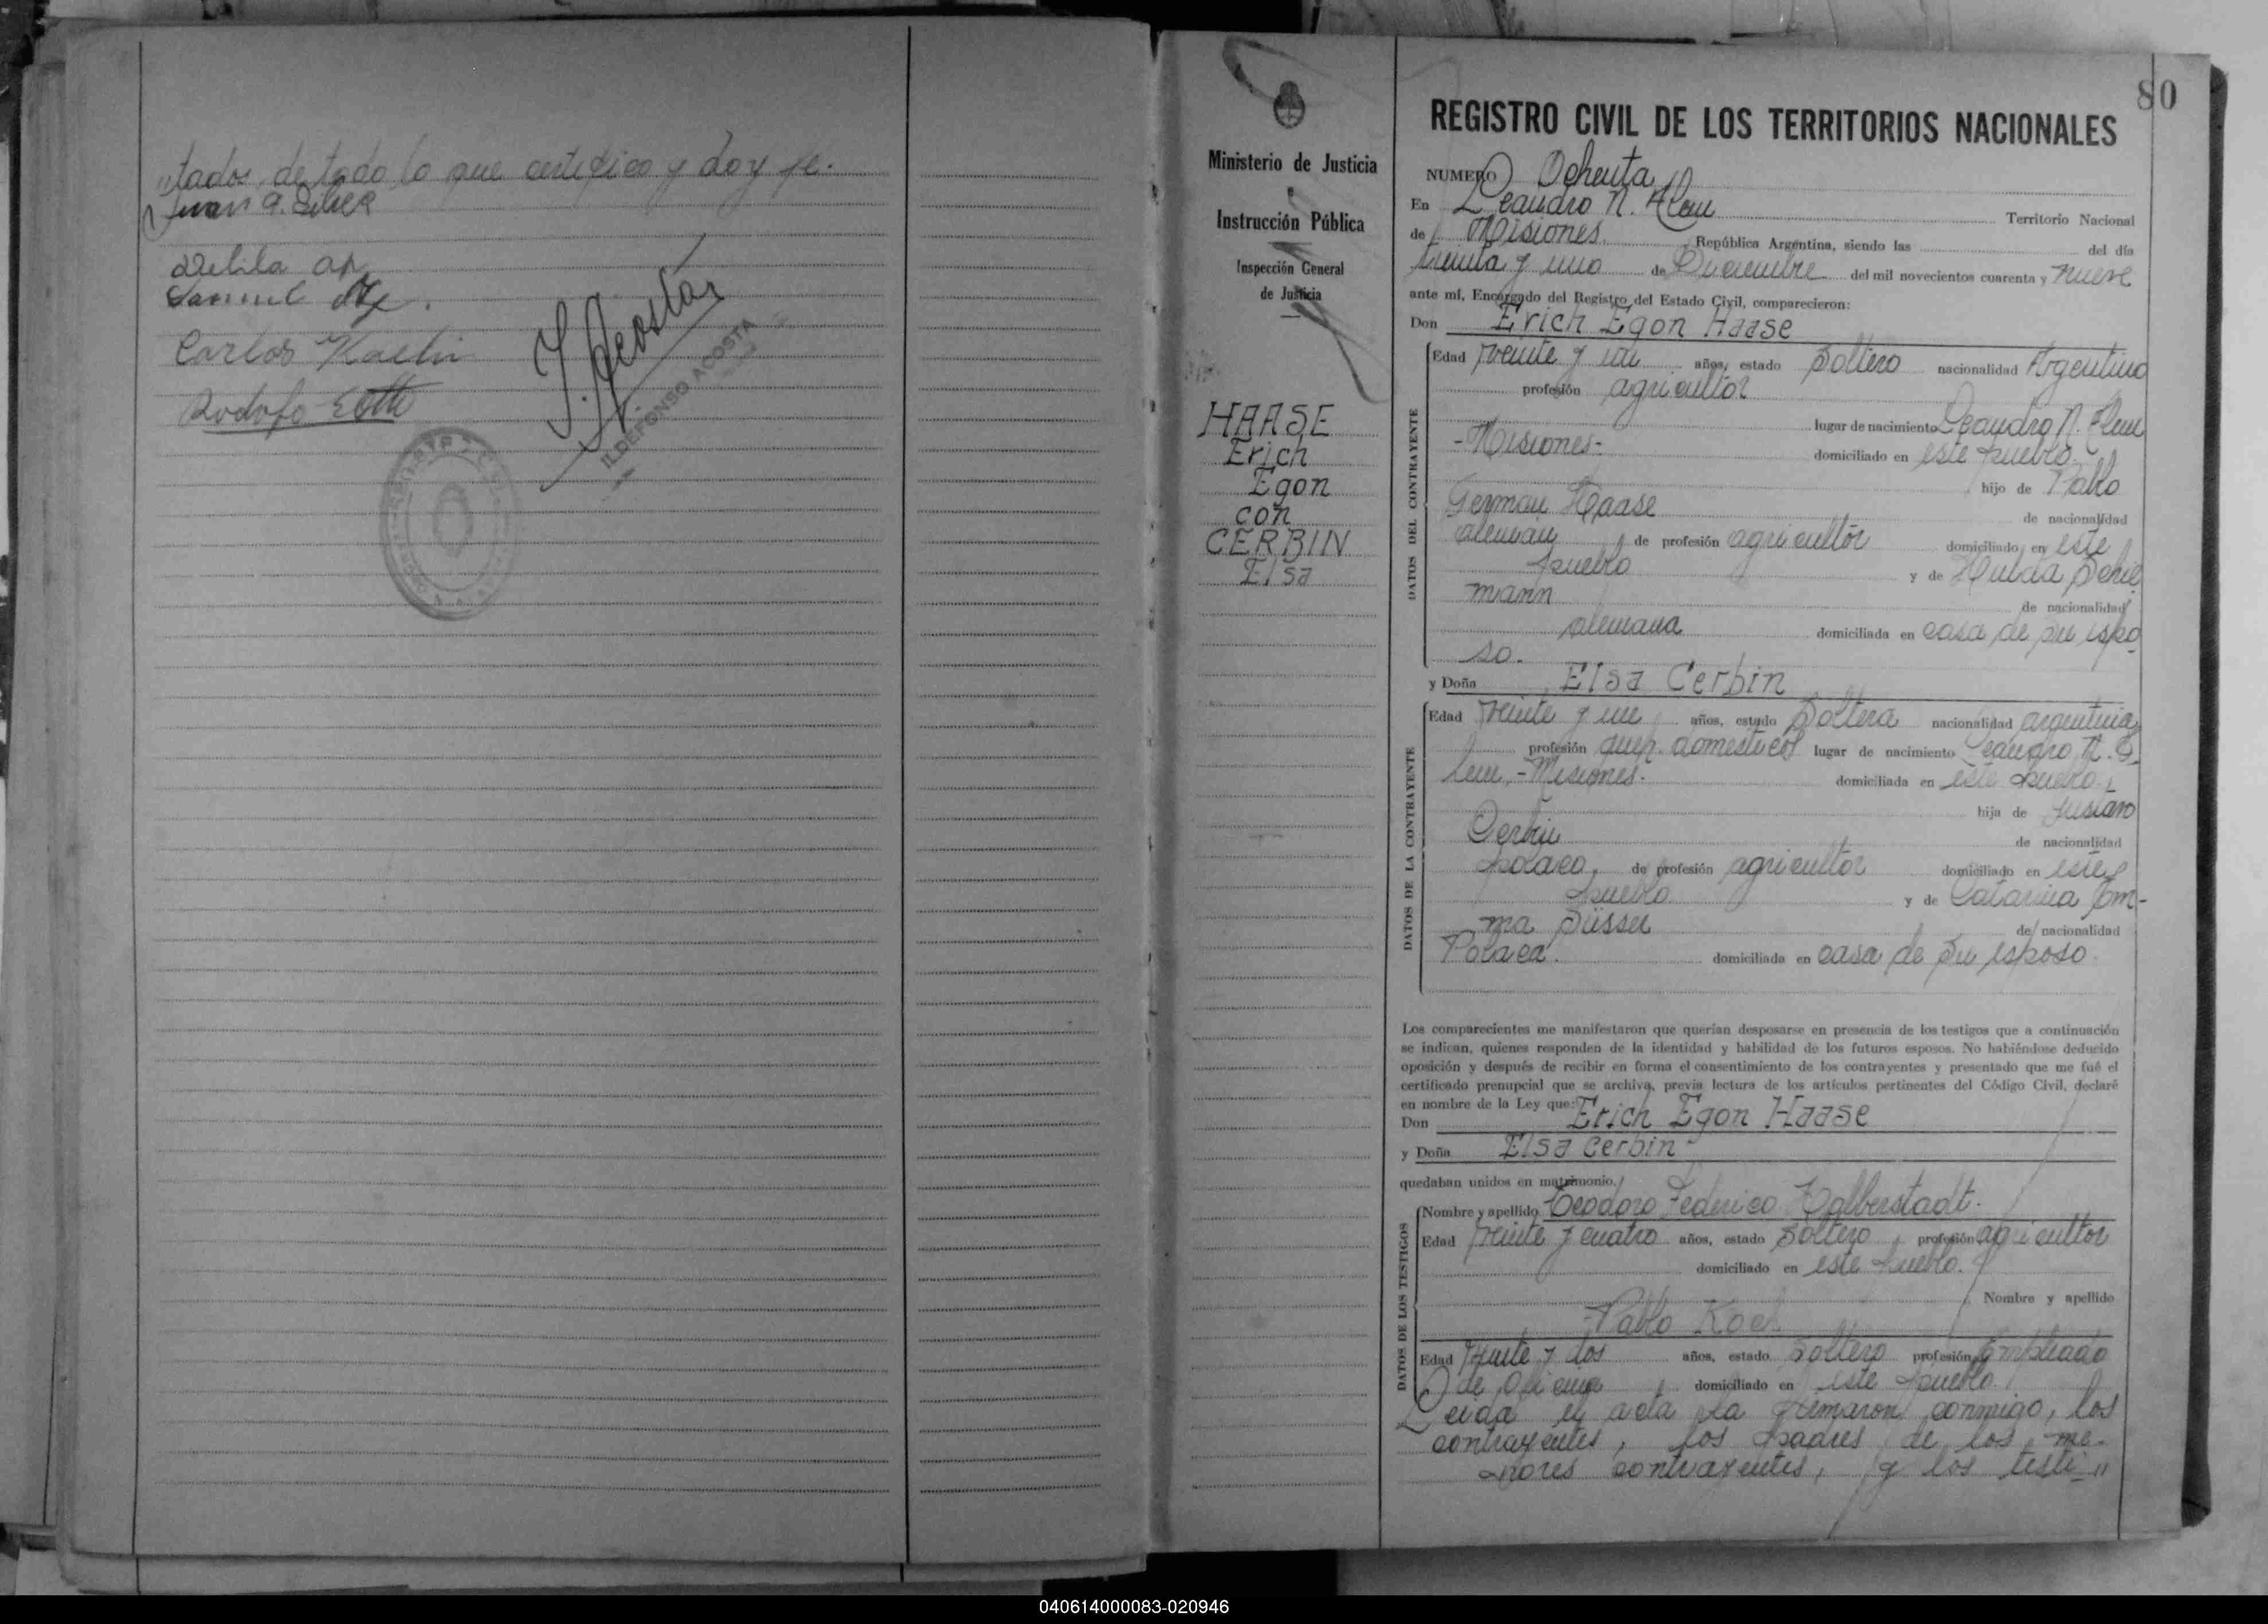 "tados, de todo lo que certifico y doy fe.
Juan A.
Samuel
Carlos
Rodolfo
I. Acosta
ILDEFONSO ACOSTA
80
Ministerio de Justicia
e
Instrucción Pública
Inspección General
de Justicia
HAASE
Erich
Egon
con
CERBIN
Elsa
REGISTRO CIVIL DE LOS TERRITORIOS NACIONALES
NUMERO Ochenta
En Leandro N. Alem Territorio Nacional
de Misiones República Argentina, siendo las del día
treinta y uno de Diciembre del mil novecientos cuarenta y nueve
ante mí, Encargado del Registro del Estado Civil, comparecieron:
Don Erich Egon Haase
DATOS DEL CONTRAYENTE
Edad veinte y un años, estado Soltero nacionalidad Argentino
profesión agricultor
lugar de nacimiento Leandro N. Alem
-Misiones- domiciliado en este pueblo
hijo de Pablo
German Haase de nacionalidad
alemán de profesión agricultor domiciliado en este
pueblo y de Hulda
mann de nacionalidad
alemana domiciliada en casa de su espo-
so.
y Doña Elsa Cerbin
DATOS DE LA CONTRAYENTE
Edad veinte y un años, estado Soltera nacionalidad argentina
profesión queh. domesticos lugar de nacimiento Leandro N. A-
lem,-Misiones- domiciliada en este pueblo,
hija de
Cerbin de nacionalidad
polaco, de profesión agricultor domiciliado en este
pueblo y de Catarina Em-
ma Süsser de nacionalidad
Polaca. domiciliada en casa de su esposo.
Los comparecientes me manifestaron que querían desposarse en presencia de los testigos que a continuación
se indican, quienes responden de la identidad y habilidad de los futuros esposos. No habiéndose deducido
oposición y después de recibir en forma el consentimiento de los contrayentes y presentado que me fué el
certificado prenupcial que se archiva, previa lectura de los artículos pertinentes del Código Civil, declaré
en nombre de la Ley que:
Don Erich Egon Haase
y Doña Elsa Cerbin
quedaban unidos en matrimonio.
DATOS DE LOS TESTIGOS
Nombre y apellido Teodoro Federico Halberstadt.
Edad veinte y cuatro años, estado Soltero profesión agricultor
domiciliado en este pueblo.
Nombre y apellido
Pablo Koch
Edad veinte y dos años, estado Soltero profesión Empleado
de oficina domiciliado en este pueblo.
Leida el acta la firmaron conmigo, los
contrayentes, los padres de los me-
nores contrayentes, y los testi-"
040614000083-020946